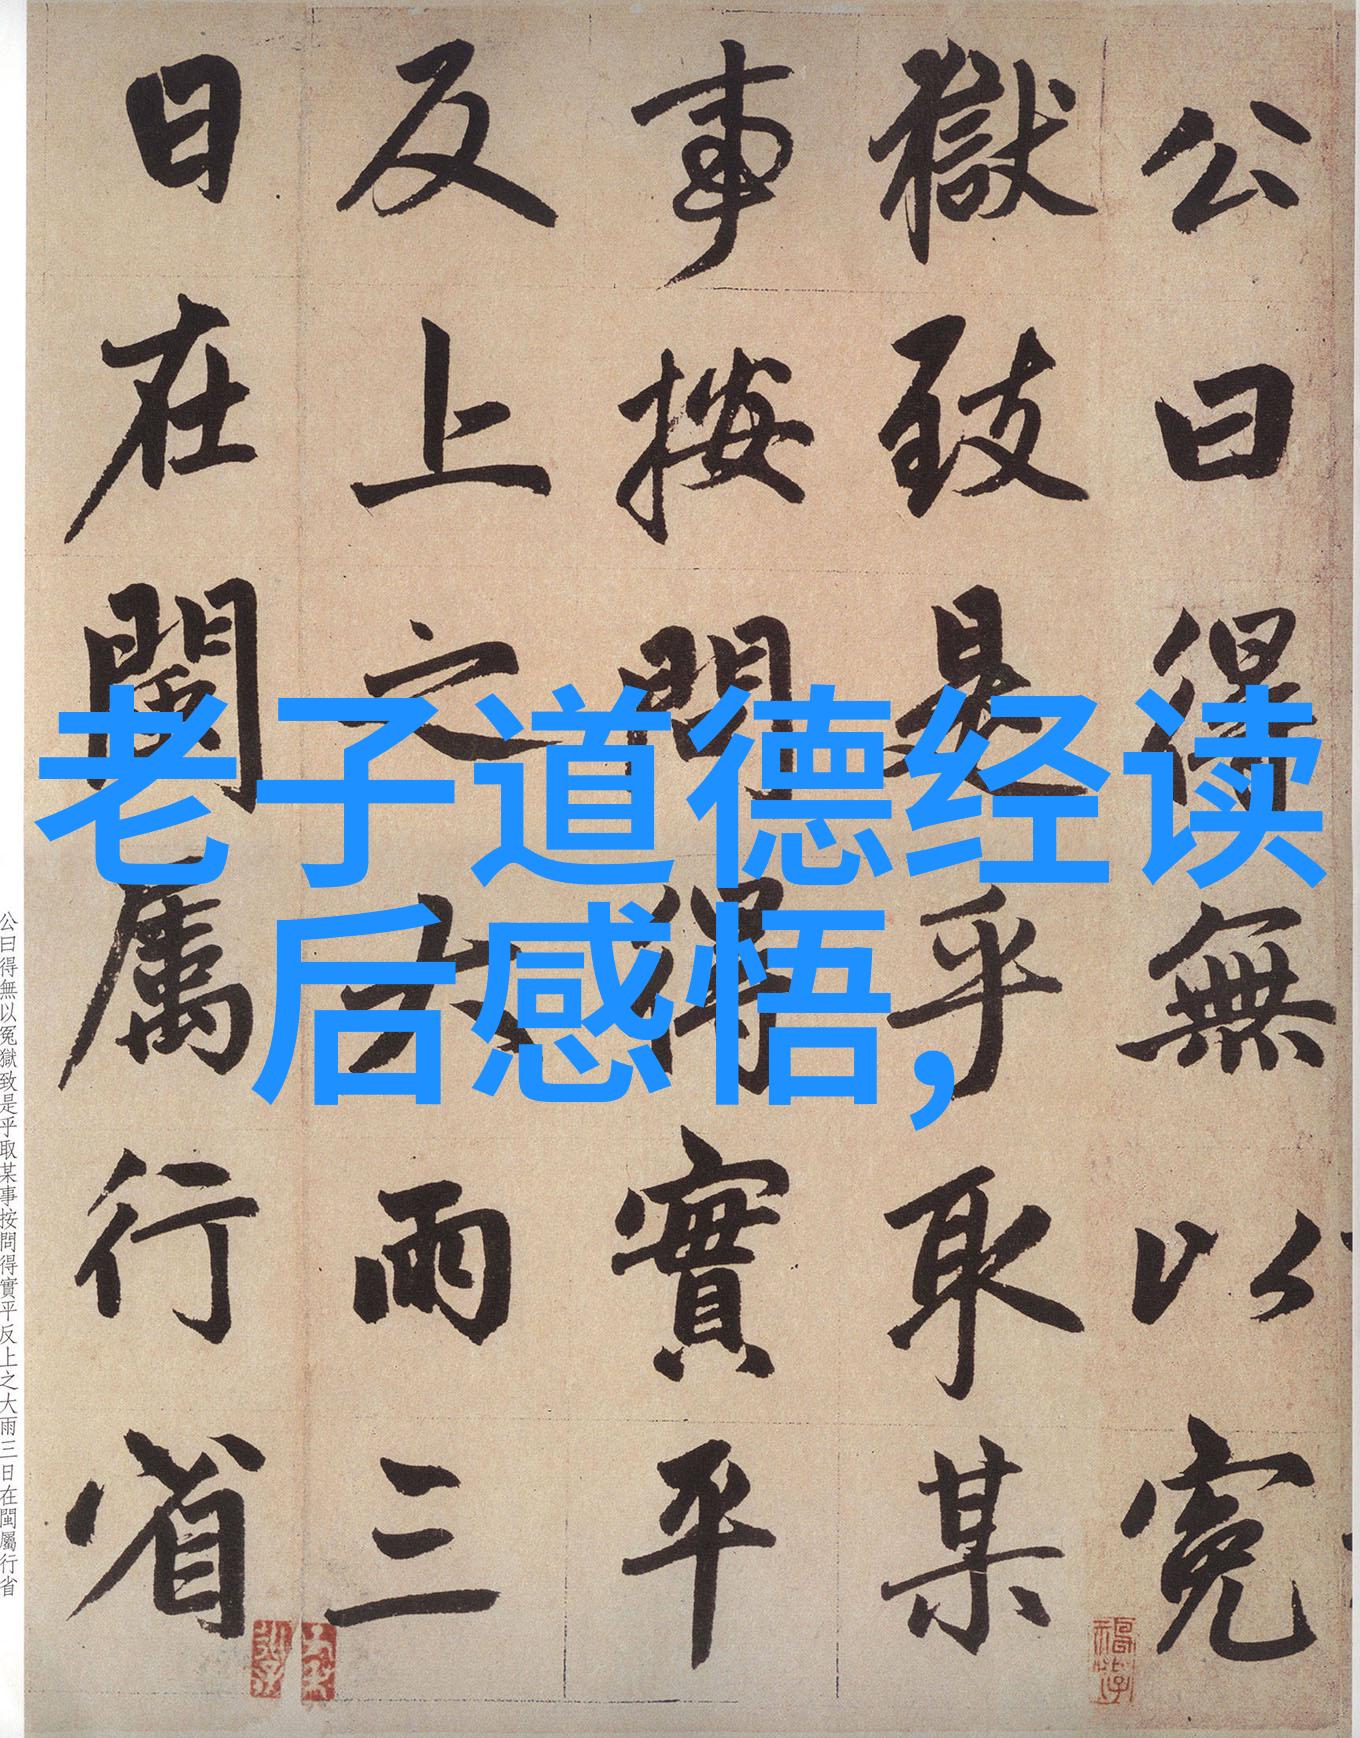 公曰得無以冤
獄致是乎取某
事按問得實平
反上之大雨三
日在閩属行省
老子道德经读
后感悟,
公曰得無以冤獄致是乎取某事按問得實平反上之大雨三日在閩屬行省